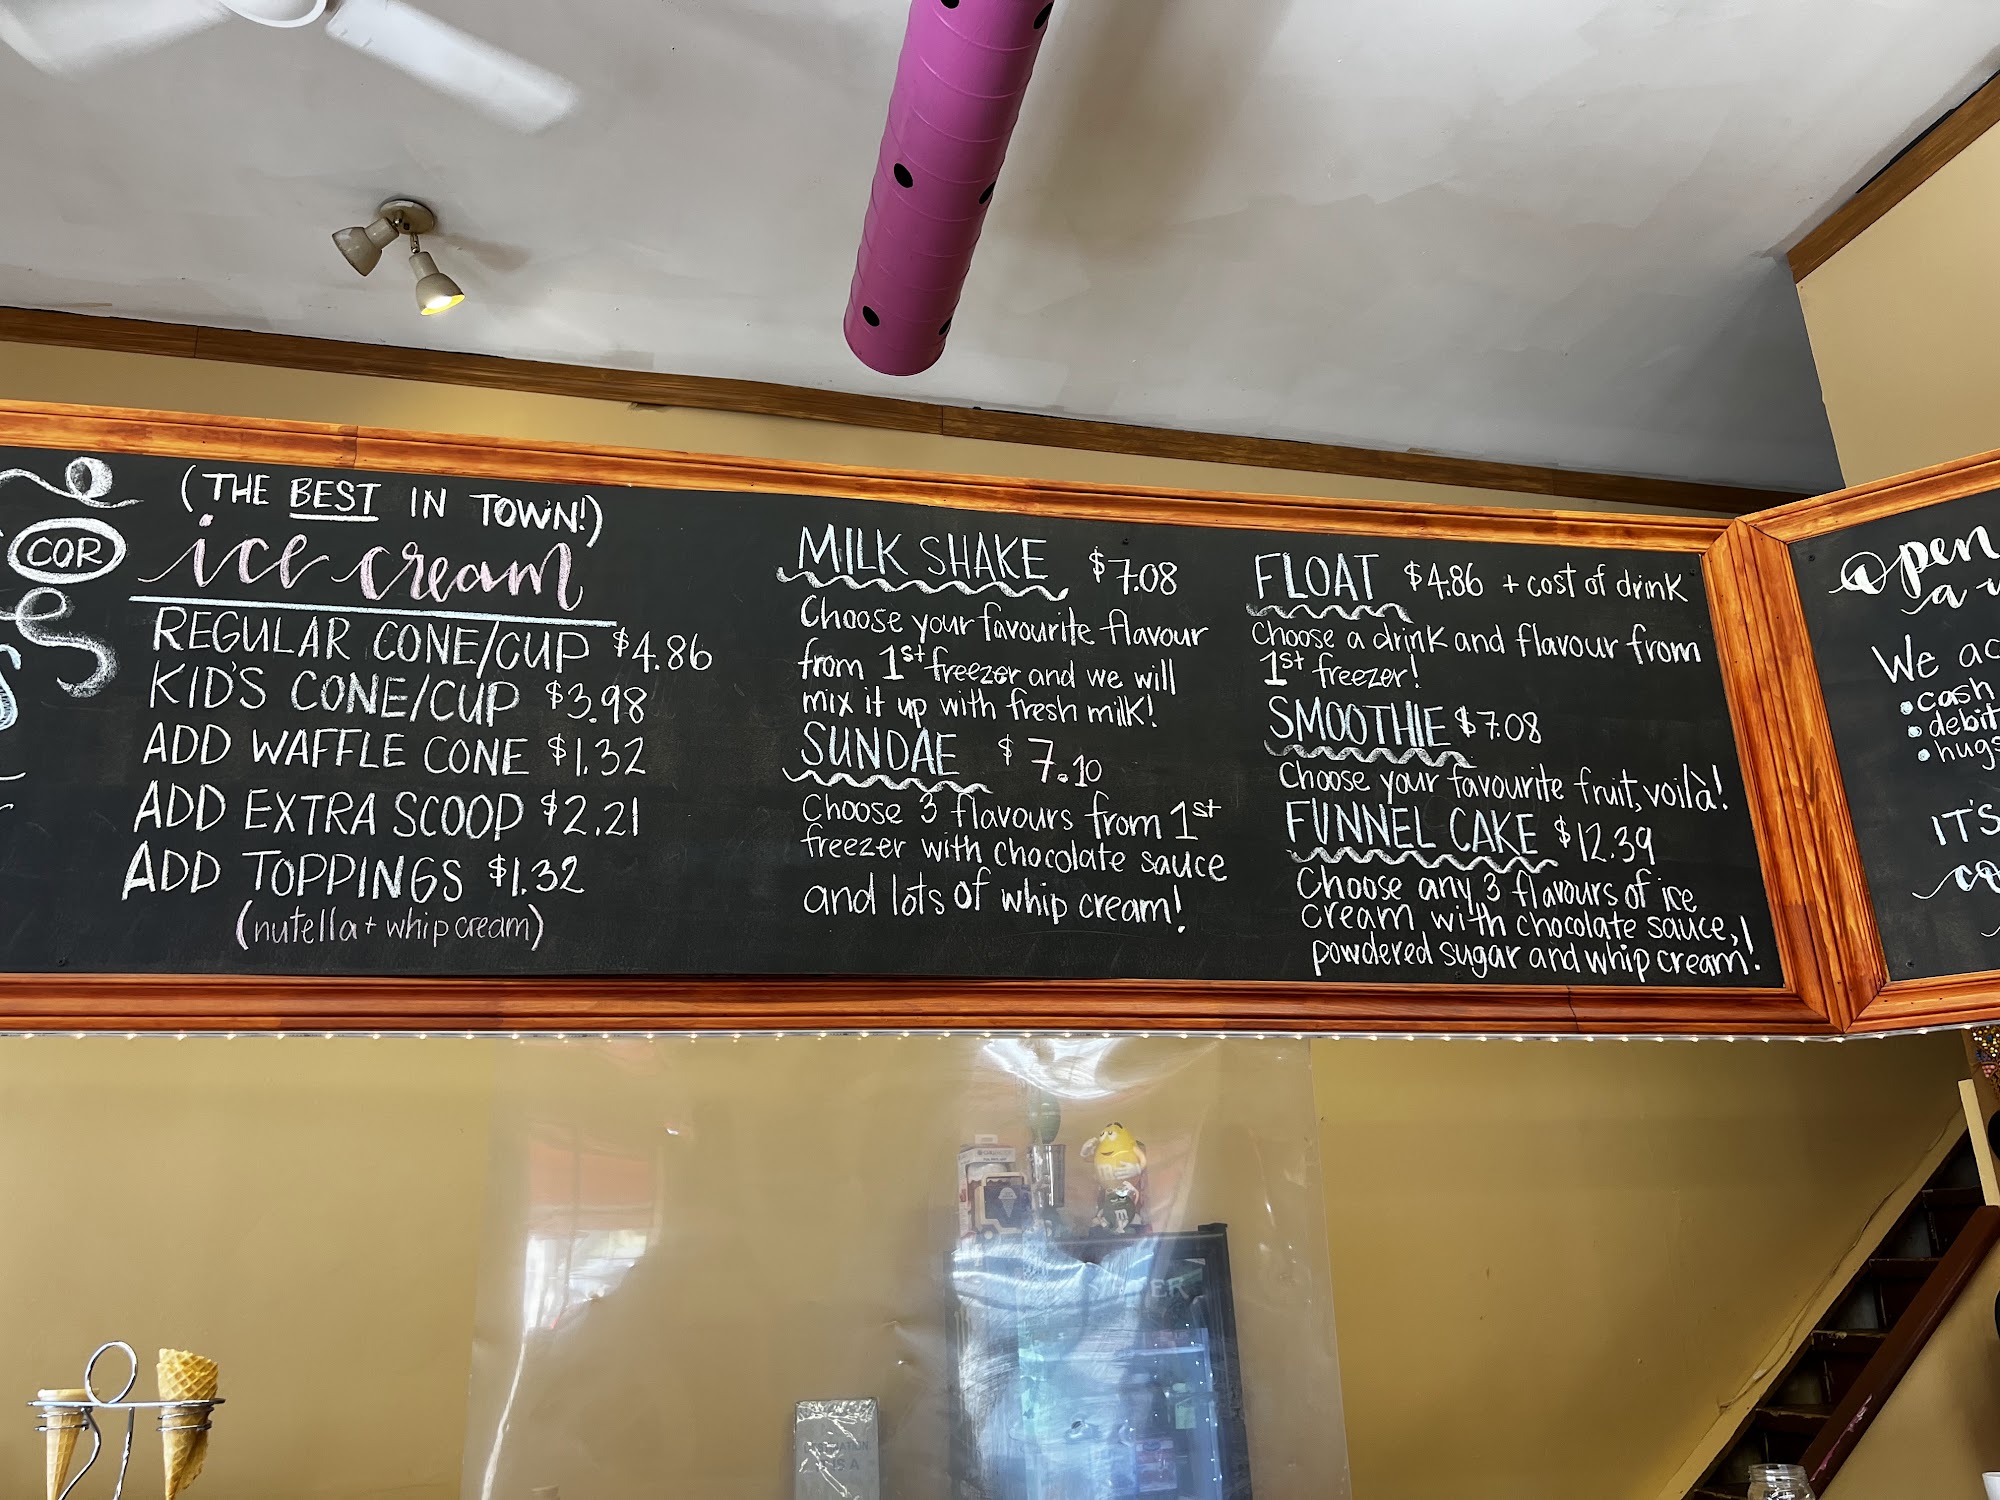 COR
(THE BEST IN TOWN!)
ice cream
REGULAR CONE/CUP $4.86
KID'S CONE/CUP $3.98
ADD WAFFLE CONE $1.32
ADD EXTRA SCOOP $2.21
ADD TOPPINGS $1.32
(nutella + whip cream)
MILK SHAKE $7.08
Choose your favourite flavour
from 1st freezer and we will
mix it up with fresh milk!
SUNDAE $7.10
Choose 3 flavours from 1st
freezer with chocolate sauce
and lots of whip cream!
FLOAT $4.86 + cost of drink
Choose a drink and flavour from
1st freezer!
SMOOTHIE $7.08
Choose your favourite fruit, voilà!
FUNNEL CAKE $12.39
Choose any 3 flavours of ice
cream with chocolate sauce,
powdered sugar and whip cream!
Open
We ac
• cash
• debit
• hugs
IT'S